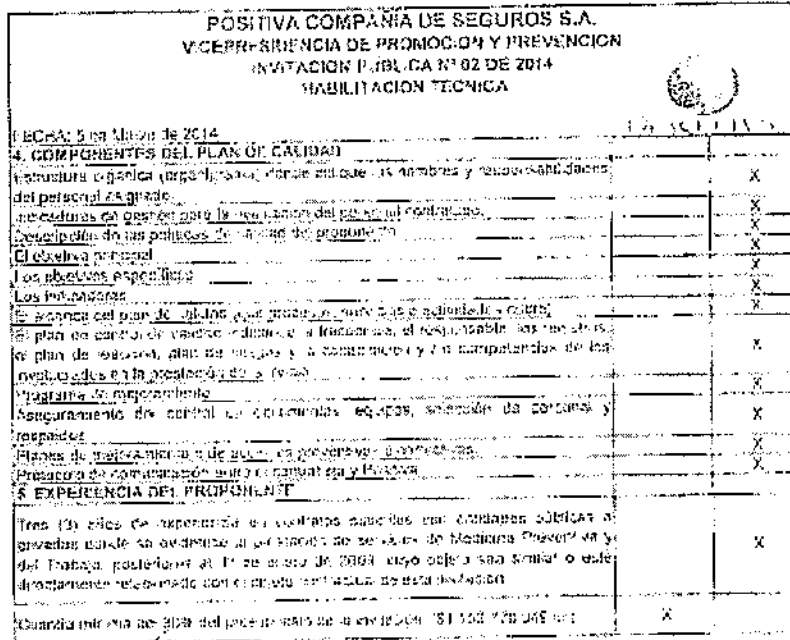 POSITIVA COMPAÑIA DE SEGUROS S.A.
VICEPRESIDENCIA DE PROMOCION Y PREVENCION
INVITACION PUBLICA Nº 02 DE 2014
HABILITACION TECNICA
FECHA: 5 de de 2014
4. COMPONENTES DEL PLAN DE CALIDAD
Estructura orgánica (organigrama) donde indique los nombres y responsabilidades
del personal asignado. X
Indicadores de gestión para la del personal contratado. X
Descripción de las políticas de calidad del proponente X
El objetivo principal X
Los objetivos específicos X
Los indicadores X
El alcance del plan de calidad procesos, servicios o actividades X
El plan de control de calidad indicando la frecuencia, el responsable, los registros,
el plan de plan de y la y las competencias de los
involucrados en la prestación del servicio X
Programa de mejoramiento X
Aseguramiento del control de documentos, equipos, selección de personal y
respaldos X
Planes de mejoramiento de acciones preventivas X
Protocolo de comunicación entre contratista y Positiva X
5. EXPERIENCIA DEL PROPONENTE
Tres (3) años de experiencia en contratos suscritos con entidades públicas o
privadas donde se evidencie la prestación de servicios de Medicina Preventiva y
del Trabajo, posteriores al 1º de enero de cuyo objeto sea similar o esté
directamente relacionado con el objeto contractual de esta invitación X
Cuantía mínima del del presupuesto de la invitación X